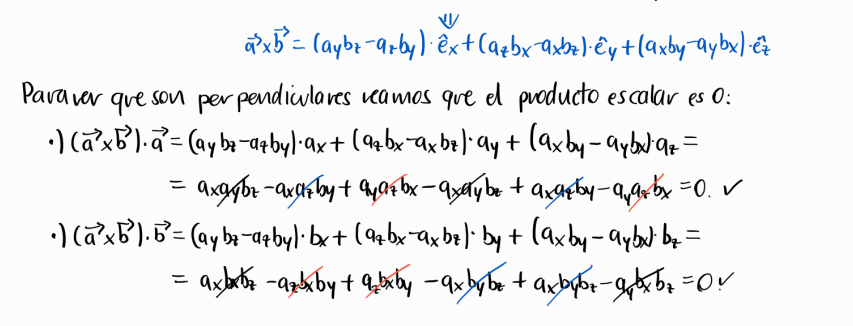 ⇓
a⃗×b⃗ = (aybz-azby)·êx+(azbx-axbz)·êy+(axby-aybx)·êz
Para ver que son perpendiculares veamos que el producto escalar es 0:
·) (a⃗×b⃗)·a⃗ = (aybz-azby)·ax+(azbx-axbz)·ay+(axby-aybx)·az =
= axaybz-axazby+ayazbx-axaybz+axazby-ayazbx=0. ✓
·) (a⃗×b⃗)·b⃗ = (aybz-azby)·bx+(azbx-axbz)·by+(axby-aybx)·bz =
= aybxbz-azbxby+azbxby-axbybz+axbybz-aybxbz=0✓